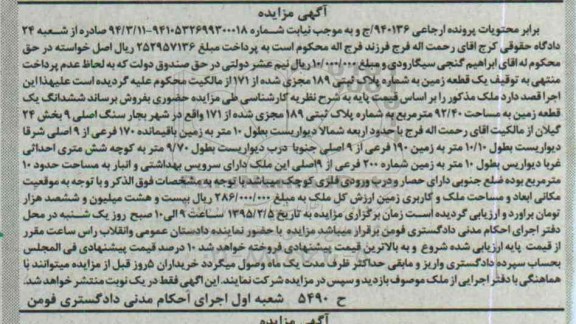 آگهی مزایده
برابر محتویات پرونده ارجاعی ۹۴۰۱۳۶/ج و به موجب نیابت شماره ۹۴۱۰۵۳۲۶۹۹۳۰۰۰۱۸-۹۴/۳/۱۱ صادره از شعبه ۲۴
دادگاه حقوقی کرج اقای رحمت اله فرج فرزند فرج اله محکوم است به پرداخت مبلغ ۲۵۲۹۵۷۱۳۶ ریال اصل خواسته در حق
محکوم له اقای ابراهیم گنجی سیگارودی و مبلغ ۱۰/۰۰۰/۰۰۰ ریال نیم عشر دولتی در حق صندوق دولت که به لحاظ عدم پرداخت
منتهی به توقیف یک قطعه زمین به شماره پلاک ثبتی ۱۸۹ مجزی شده از ۱۷۱ از مالکیت محکوم علیه گردیده است علیهذا این
اجرا قصد دارد ملک مذکور را بر اساس قیمت پایه به شرح نظریه کارشناسی طی مزایده حضوری بفروش برساند ششدانگ یک
قطعه زمین به مساحت ۹۲/۴۰ مترمربع به شماره پلاک ثبتی ۱۸۹ مجزی شده از ۱۷۱ واقع در شهر بجار سنگ اصلی ۹ بخش ۲۴
گیلان از مالکیت اقای رحمت اله فرج با حدود اربعه شمالا دیواریست بطول ۱۰ متر به زمین باقیمانده ۱۷۰ فرعی از ۹ اصلی شرقا
دیواریست بطول ۱۰/۱۰ متر به زمین ۱۹۰ فرعی از ۹ اصلی جنوبا درب دیواریست بطول ۹/۷۰ متر به کوچه شش متری احداثی
غربا دیواریس بطول ۱۰ متر به زمین شماره ۲۰۰ فرعی از ۹اصلی این ملک دارای سرویس بهداشتی و انبار به مساحت حدود ۱۰
مترمربع بوده ضلع جنوبی دارای حصار و درب ورودی فلزی کوچک میباشد با توجه به مشخصات فوق الذکر و با توجه به موقعیت
مکانی ابعاد و مساحت ملک و کاربری زمین ارزش کل ملک به مبلغ ۲۸۶/۰۰۰/۰۰۰ ریال بیست و هشت میلیون و ششصد هزار
تومان براورد و ارزیابی گردیده است زمان برگزاری مزایده به تاریخ ۱۳۹۵/۲/۵ ساعت ۹ الی ۱۰ صبح روز یک شنبه در محل
دفتر اجرای احکام مدنی دادگستری فومن برقرار میباشد مزایده با حضور نماینده دادستان عمومی وانقلاب راس ساعت مقرر
از قیمت پایه ارزیابی شده شروع و به بالاترین قیمت پیشنهادی فروخته خواهد شد ۱۰ درصد قیمت پیشنهادی فی المجلس
بحساب سپرده دادگستری واریز و مابقی حداکثر ظرف مدت یک ماه وصول میگردد خریداران ۵روز قبل از مزایده میتوانند با
هماهنگی با دفتر اجرایی از ملک موصوف بازدید و سپس در مزایده شرکت نمایند. این آگهی فقط در یک نوبت منتشر خواهد شد.
ح ۵۴۹۰ شعبه اول اجرای احکام مدنی دادگستری فومن
آگهی مزایده